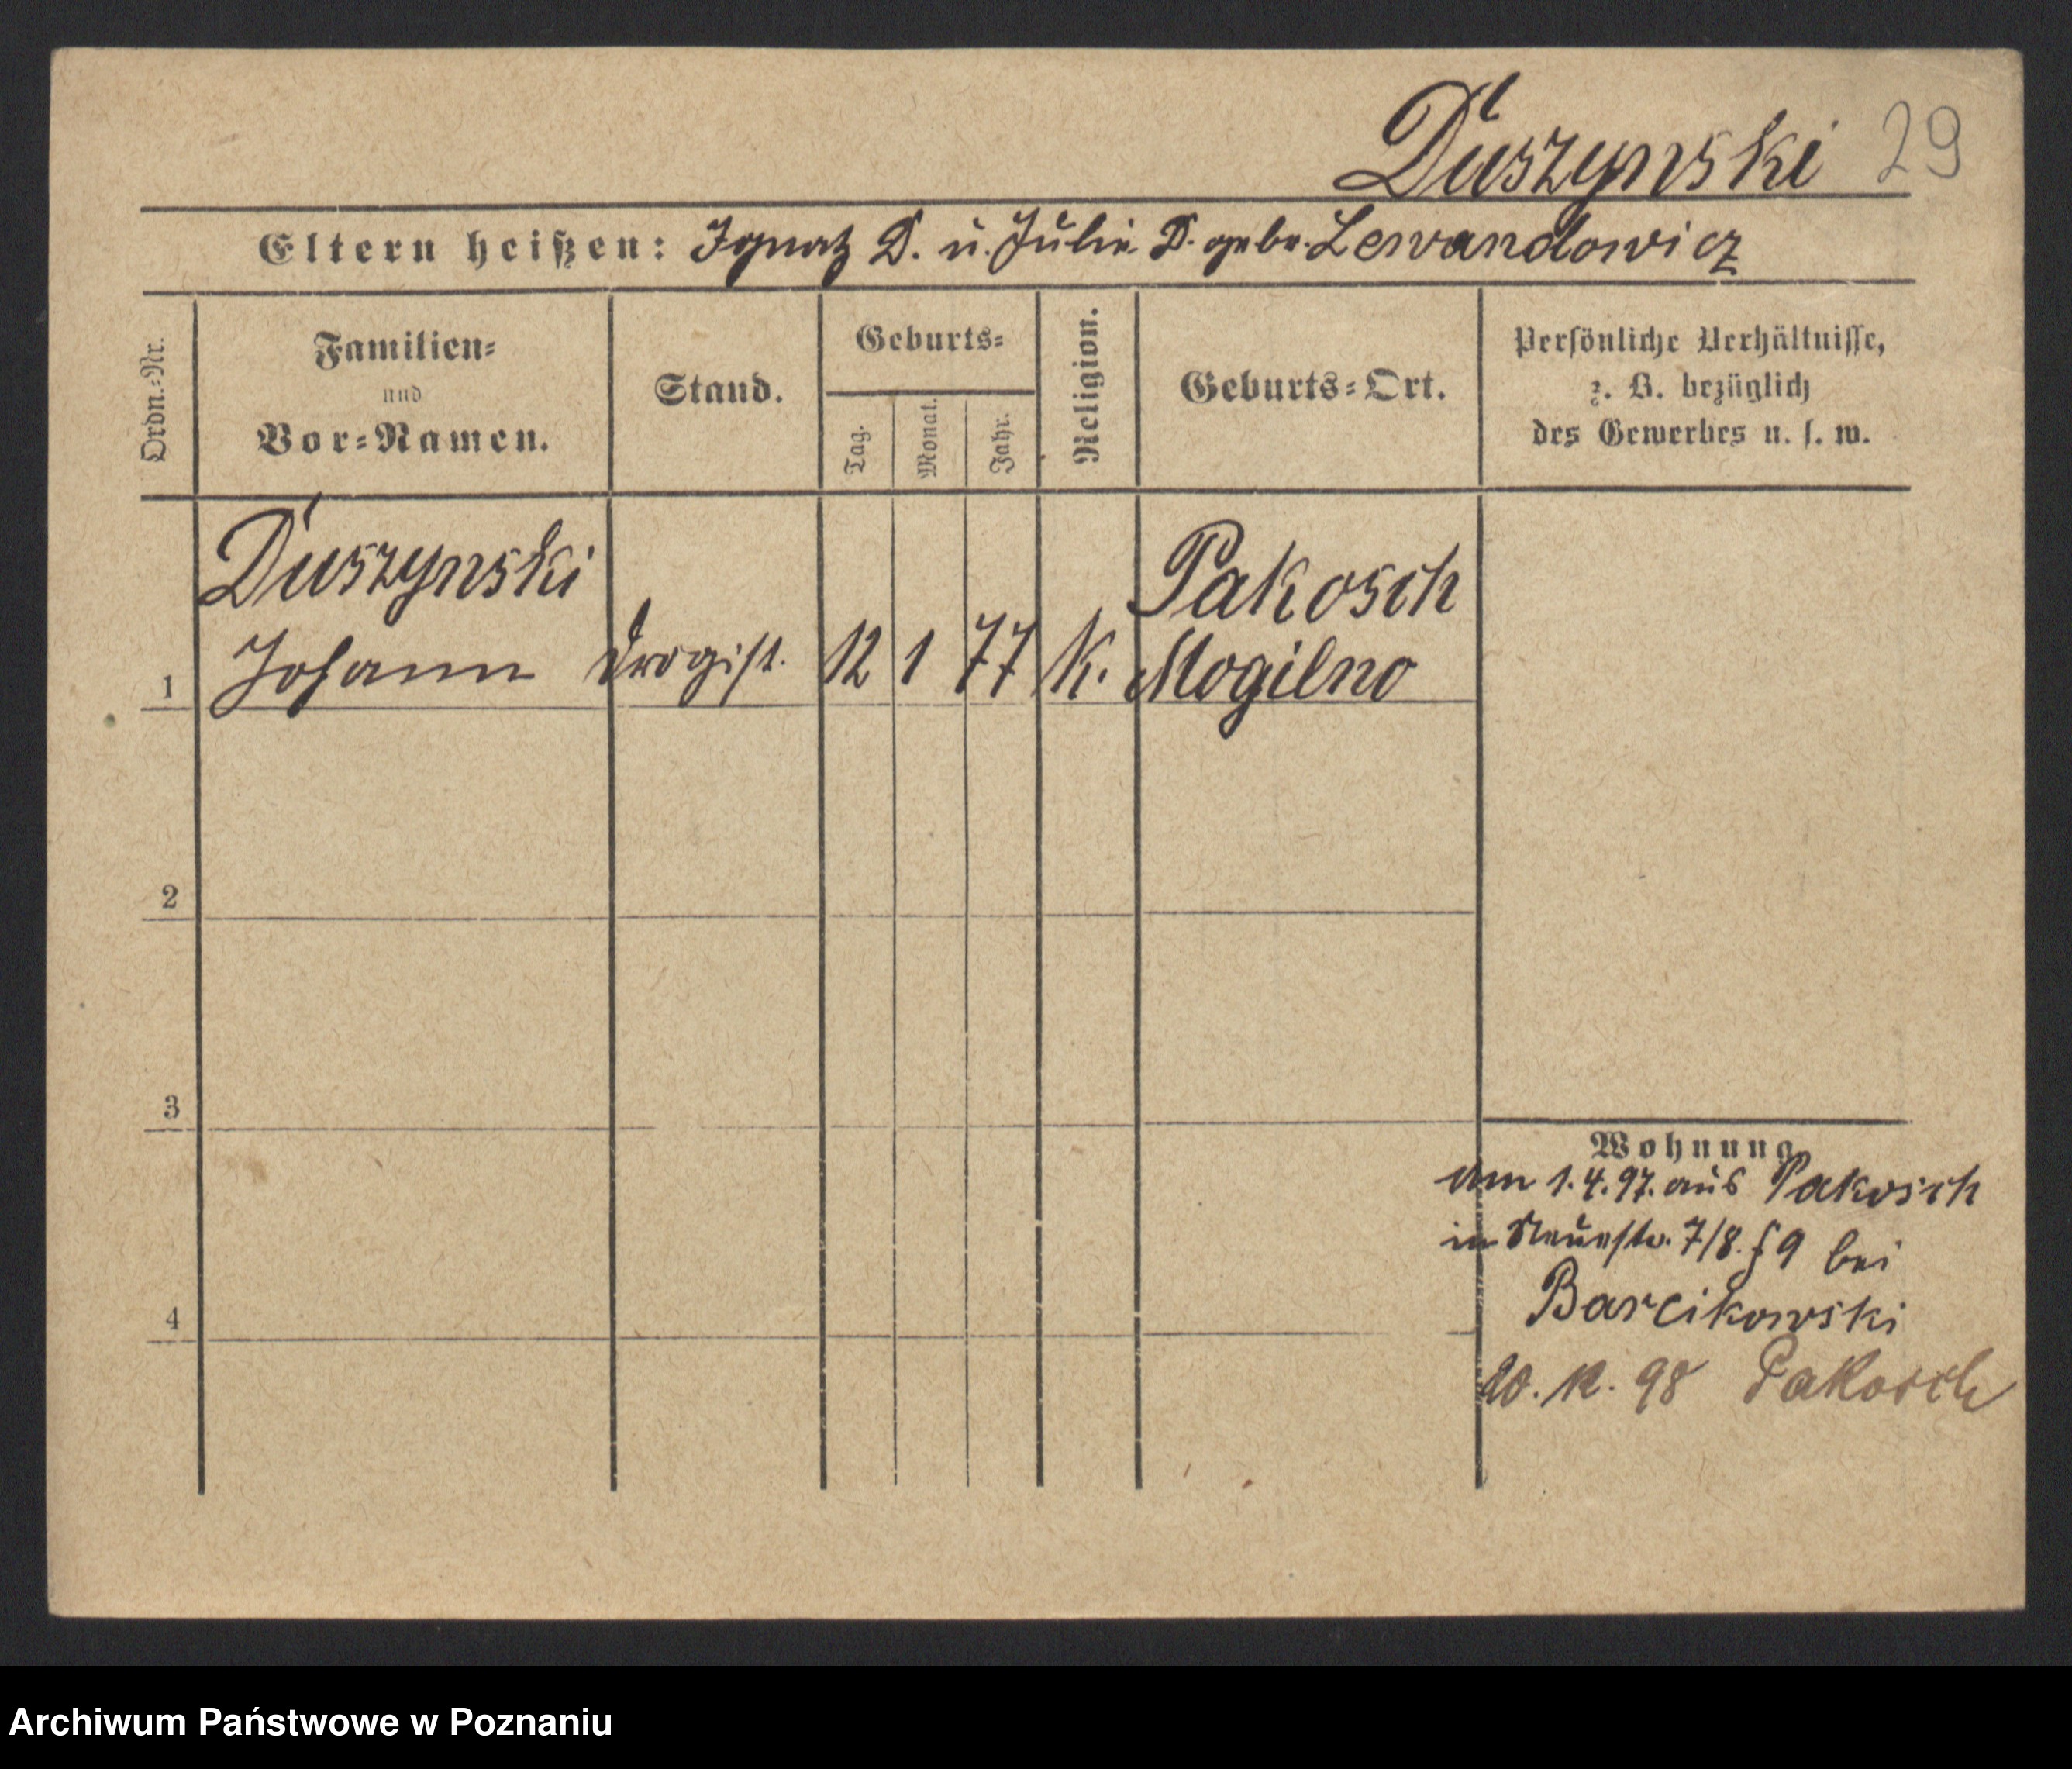 Duszynski 29
Eltern heißen: Ignatz D. u. Julie D. gebr. Lewandowicz
Ordn.-Nr.
Familien-
und
Vor-Namen.
Stand.
Geburts-
Tag.
Monat.
Jahr.
Religion.
Geburts-Ort.
Persönliche Verhältnisse,
z. B. bezüglich
des Gewerbes u. s. w.
Duszynski Pakosch
1 Johann Drogist. 12 1 77 K. Mogilno
2
3
4
Wohnung
am 1.4.97. aus Pakosch
in Neuestr. 7/8. 9 bei
Barcikowski
20. 12. 98 Pakosch
Archiwum Państwowe w Poznaniu